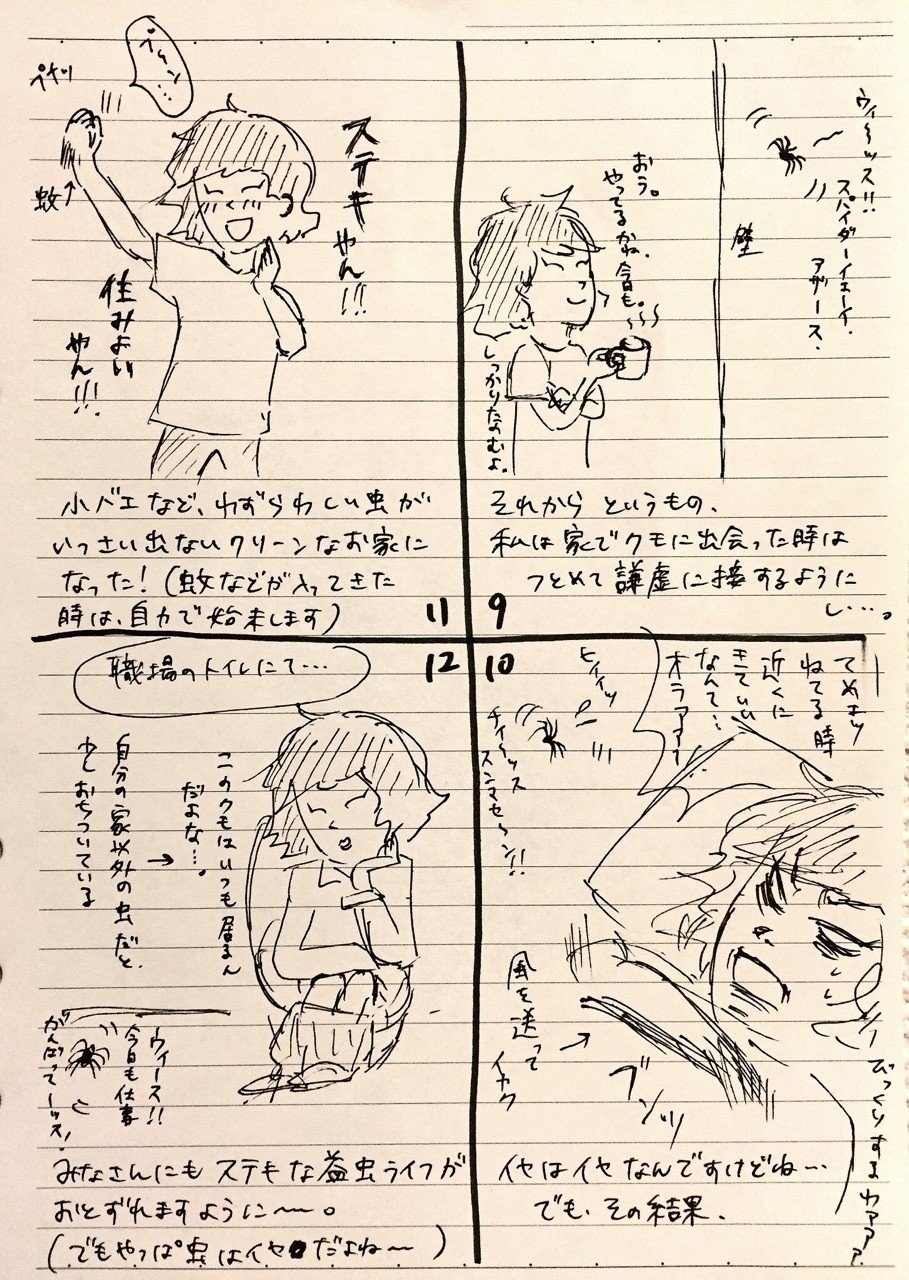 ウィ〜ッス!!
スパイダーイェーイ.
アザース.
壁
おう。
やってるかね、今日も。
しっかりたのむよ。
それからというもの、
私は家でクモに出会った時は
つとめて謙虚に接するように
し…。
9
10
てめェッ
ねてる時
近くに
きていい
なんて…
オラァァァ
ヒィィッ
チィ〜ッス
スンマセ〜ン!!
風を送って
イカク
ブンッッ
びっくりするわァァァ
イヤはイヤなんですけどね…
でも、その結果、
ステキやん!!!
住みよい
やん!!!
ペチッ
蚊
小バエなど、わずらわしい虫が
いっさい出ないクリーンなお家に
なった!(蚊などが入ってきた
時は、自力で始末します)
11
12
職場のトイレにて…
このクモはいつも居るん
だよな…。
自分の家以外の虫だと、
少しおちついている
ウィース!!
今日も仕事
がんばって〜ッス!
みなさんにもステキな益虫ライフが
おとずれますように〜。
(でもやっぱ虫はイヤだよね〜)